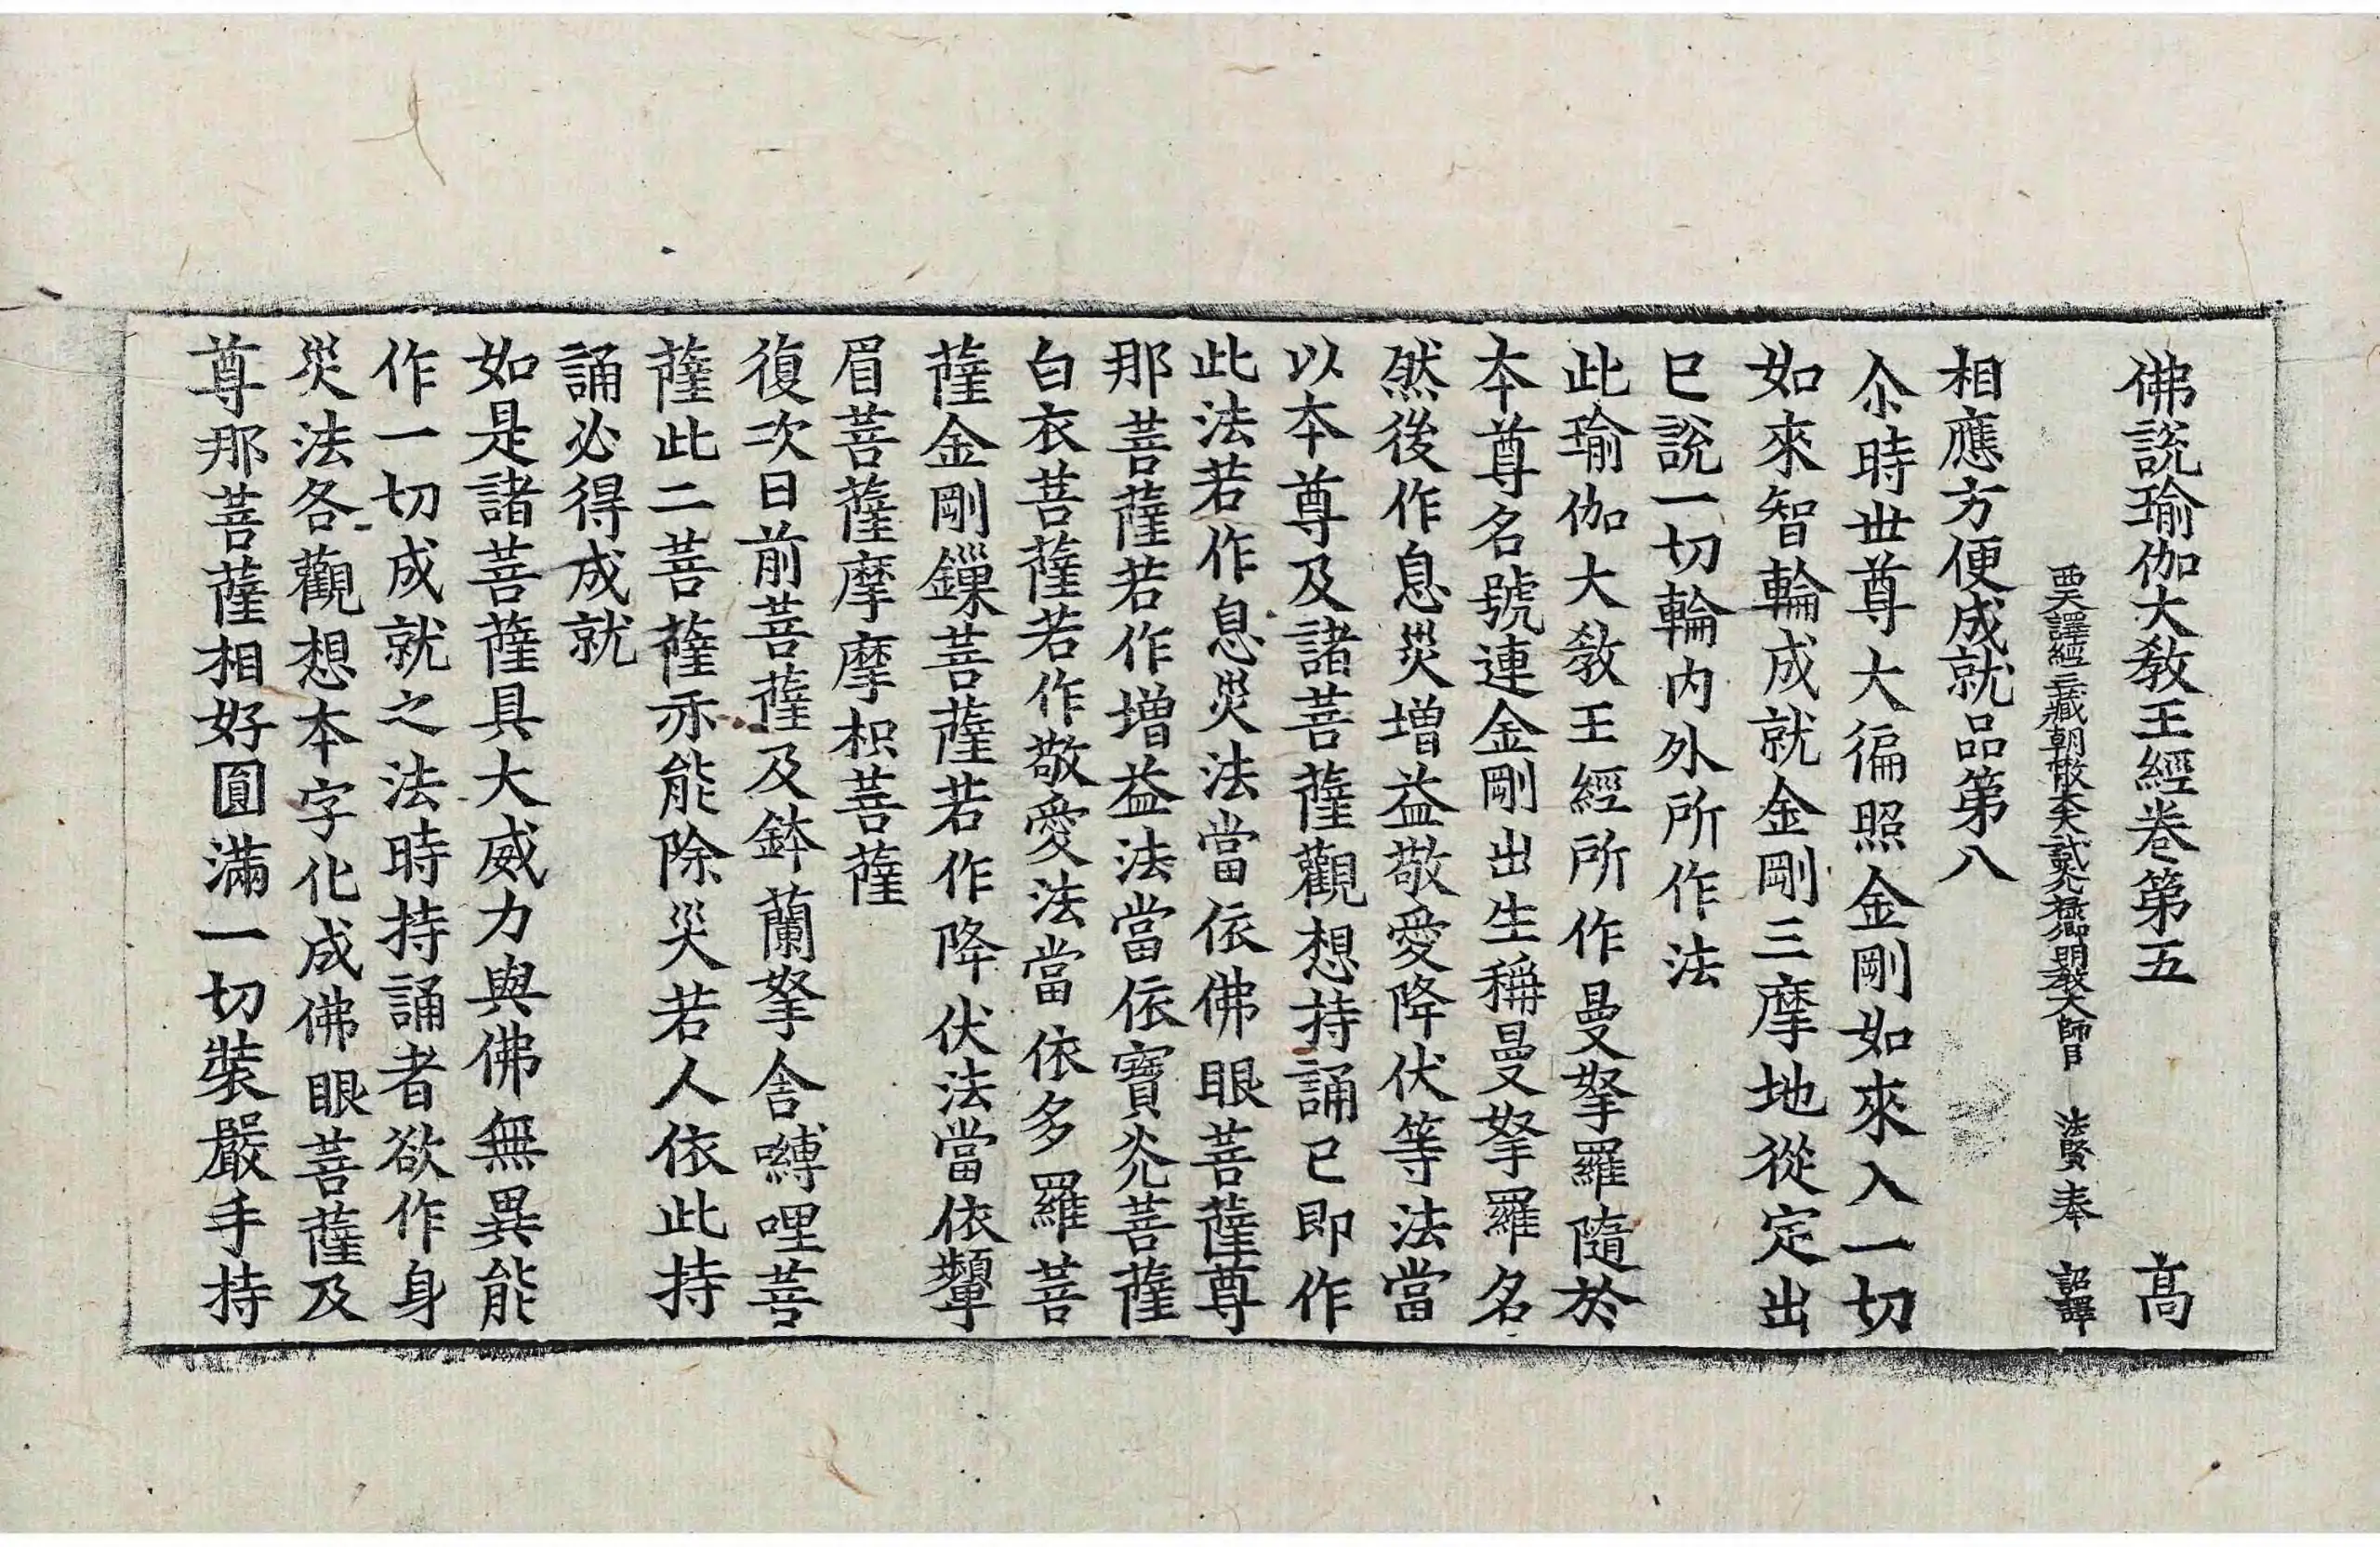 佛說瑜伽大敎王經卷第五 高
西天譯經三藏朝散大夫試光祿卿明敎大師臣 法賢奉 詔譯
相應方便成就品第八
尒時世尊大徧照金剛如來入一切
如來智輪成就金剛三摩地從定出
已說一切輪內外所作法
此瑜伽大敎王經所作曼拏羅隨於
本尊名號連金剛出生稱曼拏羅名
然後作息災增益敬愛降伏等法當
以本尊及諸菩薩觀想持誦已即作
此法若作息災法當依佛眼菩薩尊
那菩薩若作增益法當依寶光菩薩
白衣菩薩若作敬愛法當依多羅菩
薩金剛鏁菩薩若作降伏法當依顰
眉菩薩摩摩枳菩薩
復次日前菩薩及鉢蘭拏舍嚩哩菩
薩此二菩薩亦能除災若人依此持
誦必得成就
如是諸菩薩具大威力與佛無異能
作一切成就之法時持誦者欲作身
災法各觀想本字化成佛眼菩薩及
尊那菩薩相好圓滿一切裝嚴手持